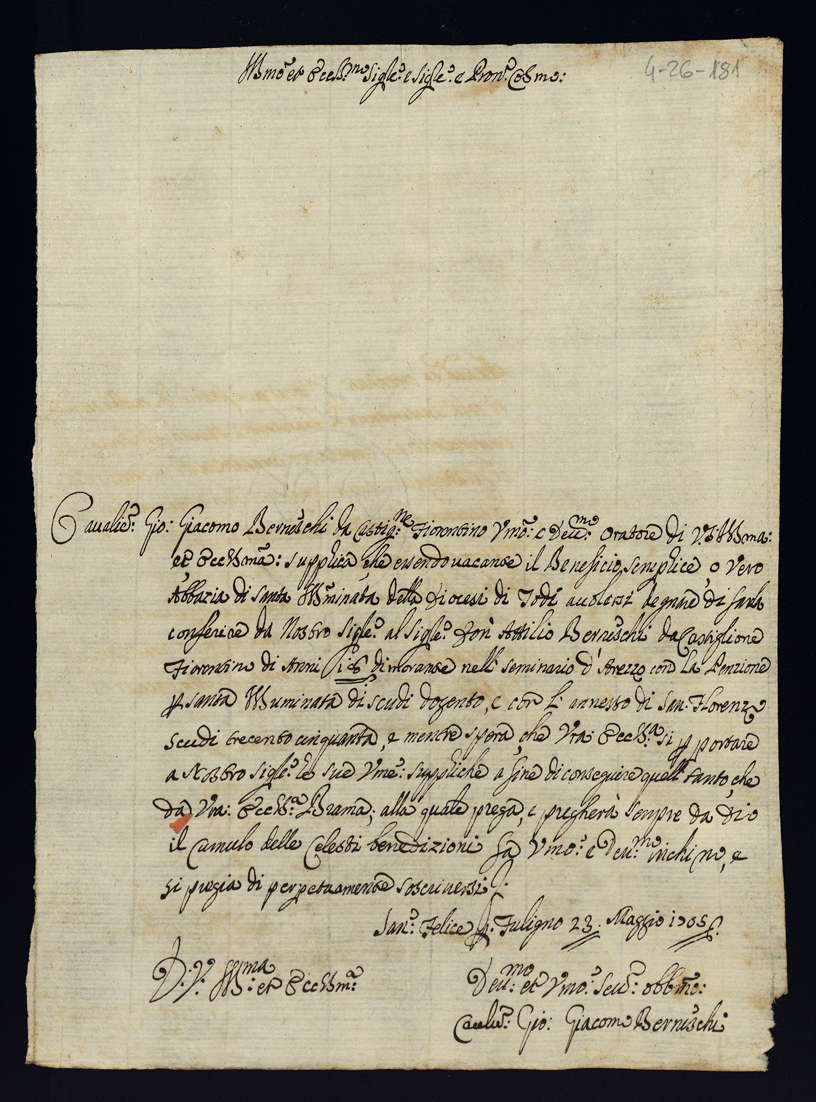 Ill.mo et Ecc.mo Sig.re e Sig.re e Pron. Col.mo:
4-26-181
Cavalie.r Gio: Giacomo Berneschi da Castig.ne Fiorentino Vmo: e Deu.mo Oratore di V.S. Illma:
et Ecc.ma: supplica che essendo vacante il Beneficio Semplice o vero
Abbazia di Santa Illuminata della Diocesi di Todi avolersi degnare di farla
conferire da Nostro Sig.re al Sig.re Don Attilio Berneschi da Castiglione
Fiorentino di Anni 16 dimorante nell Seminario d'Arezzo con la Penzione
p Santa Illuminata di scudi dogento, e con l'annesso di San Florenzo
scudi trecento cinquanta, e mentre spera, che Vra: Ecc.a si p portare
a Nostro Sig.re le sue Vme: suppliche a fine di conseguire quell tanto, che
da Vra: Ecc.a Brama; alla quale prega, e pregherà sempre da Dio
il Cumulo delle Celesti benedizioni fa Vmo: e Deu.mo inchino, e
si pregia di perpetuamente soscriversi
San. Felice p. Fuligno 23: Maggio 1705.
D: V: Ill.ma et Ecc.ma
Deu.mo: et Vmo: Seu.: obb.mo:
Cavalie.r: Gio: Giacomo Berneschi